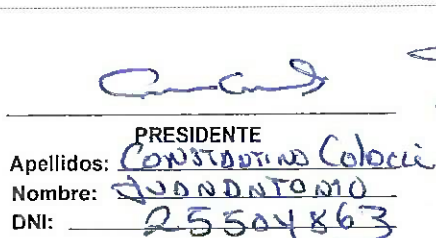 PRESIDENTE
Apellidos: CONSTANTINO Colocci
Nombre: JUAN ANTONIO
DNI: 25504863